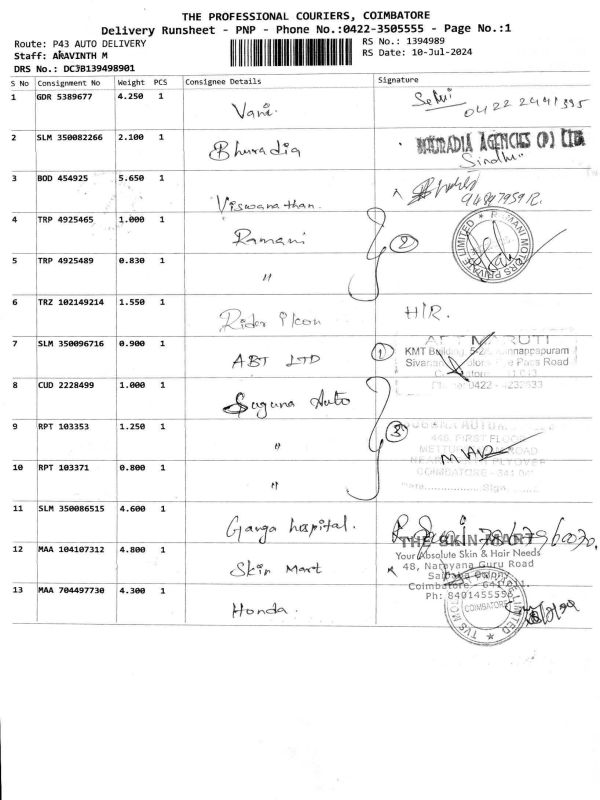 THE PROFESSIONAL COURIERS, COIMBATORE
Delivery Runsheet - PNP - Phone No.:0422-3505555 - Page No.:1
Route: P43 AUTO DELIVERY
RS No.: 1394989
Staff: ARAVINTH M
RS Date: 10-Jul-2024
DRS No.: DCJB139498901
S No Consignment No Weight PCS Consignee Details Signature
1 GDR 5389677 4.250 1 Vani Selvi 0422 2441395
2 SLM 350082266 2.100 1 Bhuradia AGENCIES (P) Ltd. Sindhu
3 BOD 454925 5.650 1 Viswanathan.
4 TRP 4925465 1.000 1 Ramani 2 RAMANI MOTORS PRIVATE LIMITED
5 TRP 4925489 0.830 1 "
6 TRZ 102149214 1.550 1 Rider ikon H/R.
7 SLM 350096716 0.900 1 ABT LTD 1 MARUTI
KMT Building
Pass Road
0422 - 4232533
8 CUD 2228499 1.000 1 Suguna Auto
9 RPT 103353 1.250 1 " 3
446, FIRST FLOOR
ROAD
FLYOVER
COIMBATORE - 641
10 RPT 103371 0.800 1 "
11 SLM 350086515 4.600 1 Ganga hospital.
12 MAA 104107312 4.800 1 Skin Mart THE SKIN MART
Your Absolute Skin & Hair Needs
48, Narayana Guru Road
Saibaba Colony
Coimbatore
Ph: 8401455558
13 MAA 704497730 4.300 1 Honda. TVS COIMBATORE LIMITED